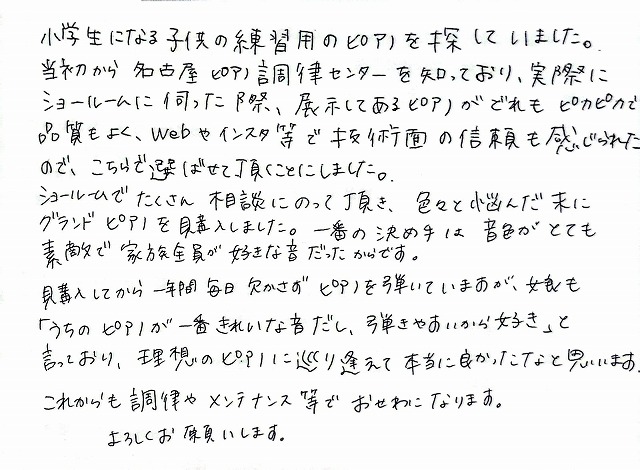 小学生になる子供の練習用のピアノを探していました。
当初から名古屋ピアノ調律センターを知っており、実際に
ショールームに伺った際、展示してあるピアノがどれもピカピカで
品質もよく、Webやインスタ等で技術面の信頼も感じられた
ので、こちらで選ばせて頂くことにしました。
ショールームでたくさん相談にのって頂き、色々と悩んだ末に
グランドピアノを購入しました。一番の決め手は音色がとても
素敵で家族全員が好きな音だったからです。
購入してから一年間毎日欠かさずピアノを弾いていますが、娘も
「うちのピアノが一番きれいな音だし、弾きやすいから好き」と
言っており、理想のピアノに巡り逢えて本当に良かったなと思います。
これからも調律やメンテナンス等でおせわになります。
よろしくお願いします。